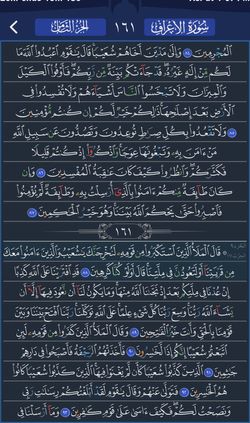 سُورَةُ الأَعْرَافِ ١٦١ الجُزْءُ الثَّامِنُ
ٱلْمُجْرِمِينَ ٨٤ وَإِلَىٰ مَدْيَنَ أَخَاهُمْ شُعَيْبًا قَالَ يَٰقَوْمِ ٱعْبُدُوا۟ ٱللَّهَ مَا
لَكُم مِّنْ إِلَٰهٍ غَيْرُهُۥ قَدْ جَآءَتْكُم بَيِّنَةٌ مِّن رَّبِّكُمْ فَأَوْفُوا۟ ٱلْكَيْلَ
وَٱلْمِيزَانَ وَلَا تَبْخَسُوا۟ ٱلنَّاسَ أَشْيَآءَهُمْ وَلَا تُفْسِدُوا۟ فِى
ٱلْأَرْضِ بَعْدَ إِصْلَٰحِهَا ذَٰلِكُمْ خَيْرٌ لَّكُمْ إِن كُنتُم مُّؤْمِنِينَ
٨٥ وَلَا تَقْعُدُوا۟ بِكُلِّ صِرَٰطٍ تُوعِدُونَ وَتَصُدُّونَ عَن سَبِيلِ ٱللَّهِ
مَنْ ءَامَنَ بِهِۦ وَتَبْغُونَهَا عِوَجًا وَٱذْكُرُوٓا۟ إِذْ كُنتُمْ قَلِيلًا
فَكَثَّرَكُمْ وَٱنظُرُوا۟ كَيْفَ كَانَ عَٰقِبَةُ ٱلْمُفْسِدِينَ ٨٦ وَإِن
كَانَ طَآئِفَةٌ مِّنكُمْ ءَامَنُوا۟ بِٱلَّذِىٓ أُرْسِلْتُ بِهِۦ وَطَآئِفَةٌ لَّمْ يُؤْمِنُوا۟
فَٱصْبِرُوا۟ حَتَّىٰ يَحْكُمَ ٱللَّهُ بَيْنَنَا وَهُوَ خَيْرُ ٱلْحَٰكِمِينَ ٨٧
١٦١
قَالَ ٱلْمَلَأُ ٱلَّذِينَ ٱسْتَكْبَرُوا۟ مِن قَوْمِهِۦ لَنُخْرِجَنَّكَ يَٰشُعَيْبُ وَٱلَّذِينَ ءَامَنُوا۟ مَعَكَ
مِن قَرْيَتِنَآ أَوْ لَتَعُودُنَّ فِى مِلَّتِنَا قَالَ أَوَلَوْ كُنَّا كَٰرِهِينَ ٨٨ قَدِ ٱفْتَرَيْنَا عَلَى ٱللَّهِ كَذِبًا
إِنْ عُدْنَا فِى مِلَّتِكُم بَعْدَ إِذْ نَجَّىٰنَا ٱللَّهُ مِنْهَا وَمَا يَكُونُ لَنَآ أَن نَّعُودَ فِيهَآ إِلَّآ أَن
يَشَآءَ ٱللَّهُ رَبُّنَا وَسِعَ رَبُّنَا كُلَّ شَىْءٍ عِلْمًا عَلَى ٱللَّهِ تَوَكَّلْنَا رَبَّنَا ٱفْتَحْ بَيْنَنَا وَبَيْنَ
قَوْمِنَا بِٱلْحَقِّ وَأَنتَ خَيْرُ ٱلْفَٰتِحِينَ ٨٩ وَقَالَ ٱلْمَلَأُ ٱلَّذِينَ كَفَرُوا۟ مِن قَوْمِهِۦ لَئِنِ
ٱتَّبَعْتُمْ شُعَيْبًا إِنَّكُمْ إِذًا لَّخَٰسِرُونَ ٩٠ فَأَخَذَتْهُمُ ٱلرَّجْفَةُ فَأَصْبَحُوا۟ فِى دَارِهِمْ
جَٰثِمِينَ ٩١ ٱلَّذِينَ كَذَّبُوا۟ شُعَيْبًا كَأَن لَّمْ يَغْنَوْا۟ فِيهَا ٱلَّذِينَ كَذَّبُوا۟ شُعَيْبًا كَانُوا۟
هُمُ ٱلْخَٰسِرِينَ ٩٢ فَتَوَلَّىٰ عَنْهُمْ وَقَالَ يَٰقَوْمِ لَقَدْ أَبْلَغْتُكُمْ رِسَٰلَٰتِ رَبِّى
وَنَصَحْتُ لَكُمْ فَكَيْفَ ءَاسَىٰ عَلَىٰ قَوْمٍ كَٰفِرِينَ ٩٣ وَمَآ أَرْسَلْنَا فِى